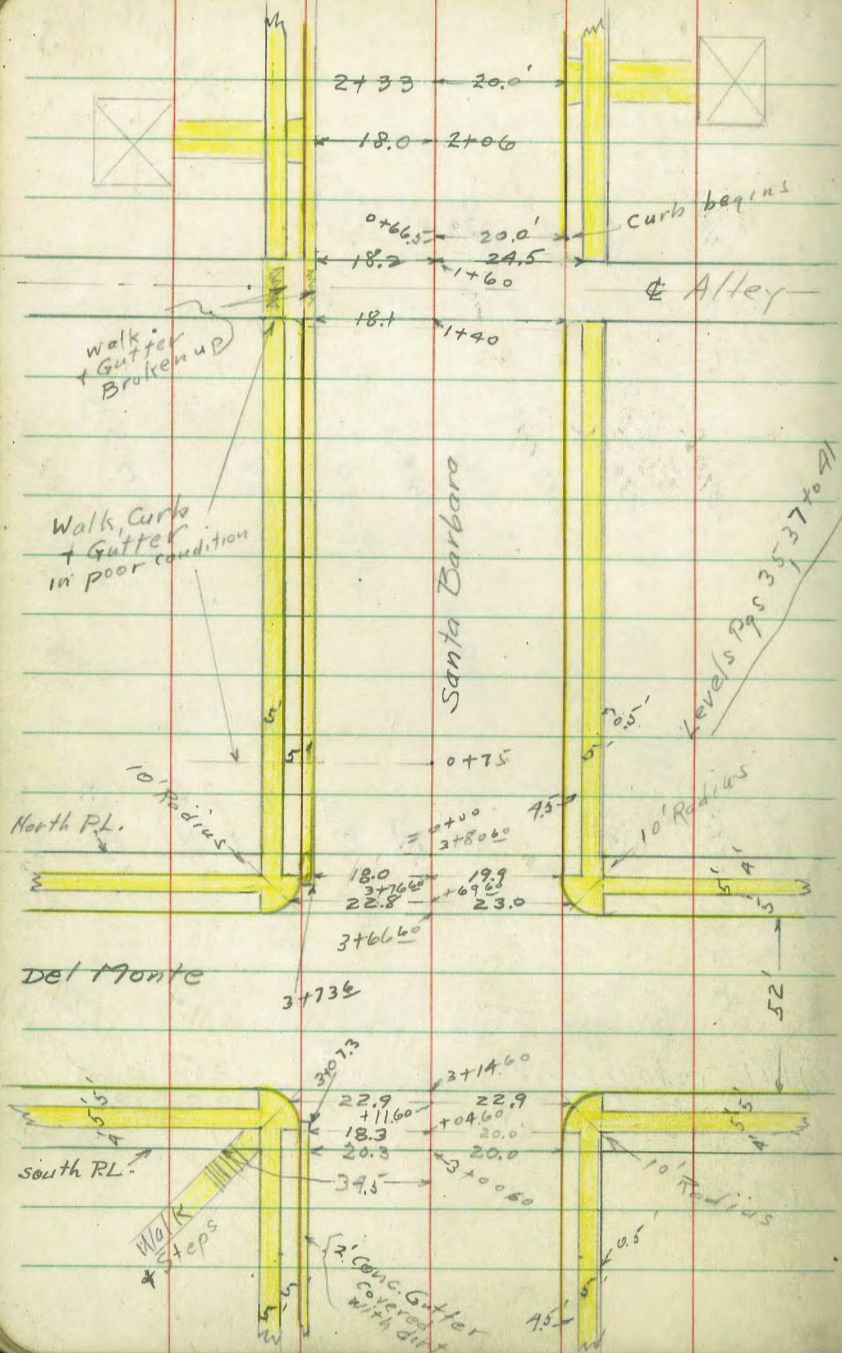 2+33 20.0'
18.0 2+06
Curb begins
0+66.5 20.0'
18.2 24.5
1+60
℄ Alley
18.1
1+40
Walk
+ Gutter
Broken up
Walk, Curb
+ Gutter
in poor condition
Santa Barbara
Levels Pgs 35, 37 to 41
5'
5
0.5'
5'
0+75
4.5'
10' Radius
10' Radius
North P.L.
= 0+00
3+80 60
18.0 19.9
3+76 60 +69 60
22.8 23.0
5' 4'
5'
3+66 60
Del Monte
3+73 6
52'
3+07.3
3+14.60
22.9 22.9
+11.60 +04.60
18.3 20.0
20.3 20.0
3+00 60
34.5
5' 5'
4'
5' 5'
4'
South P.L.
10' Radius
Walk
& Steps
2' Conc. Gutter
covered
with dirt
0.5'
5 5
5'
4.5'